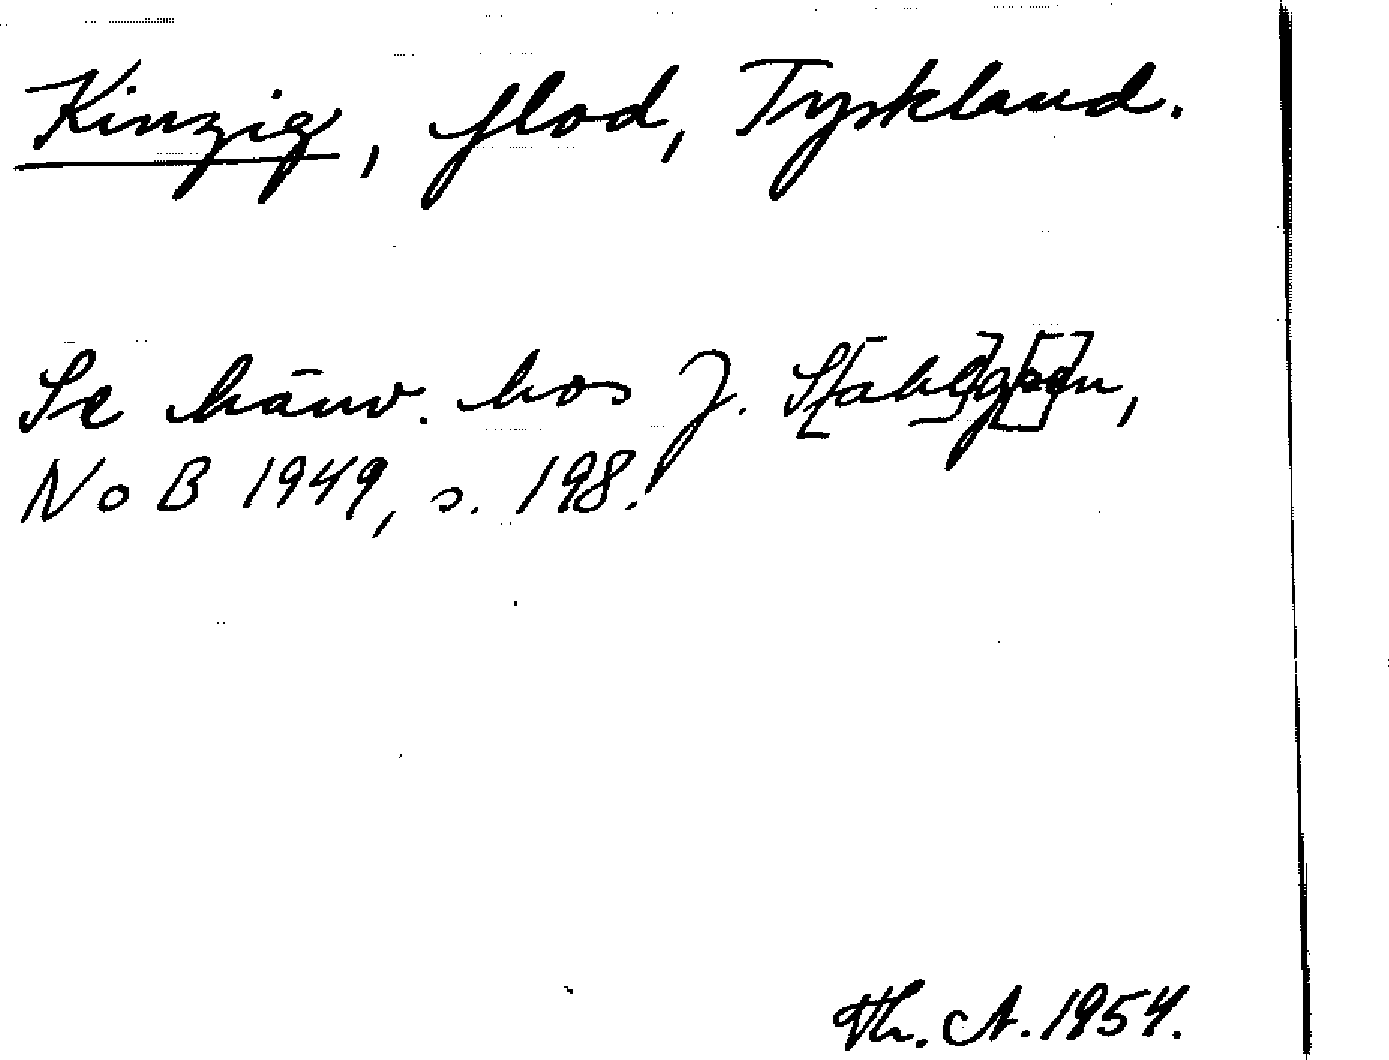 Kinzig, flod, Tyskland.
Se hänv. hos J.
NoB 1949, s. 198.
Th. A. 1954.